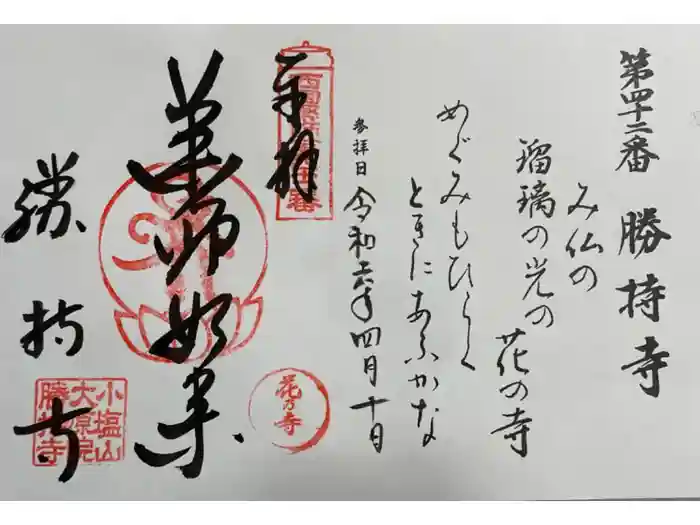 第四十二番 勝持寺
み仏の
瑠璃の光の
花の寺
めぐみもひらく
ときにあふかな
参拝日 令和六年四月十日
奉拝
西国薬師第四十二番
薬師如来
花の寺
勝持寺
小塩山
大原院
勝持寺